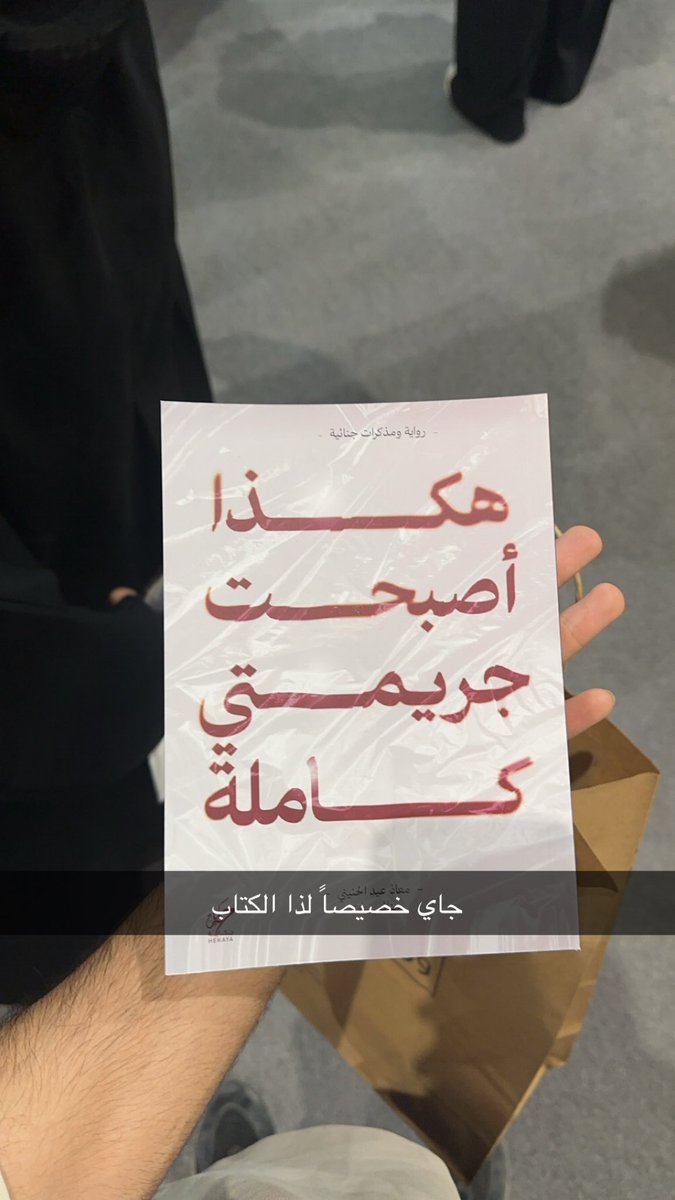 - رواية ومذكرات جنائية -
هكذا
أصبحت
جريمتي
كاملة
- معاذ عيد الحنيني -
جاي خصيصاً لذا الكتاب
HEKAYA